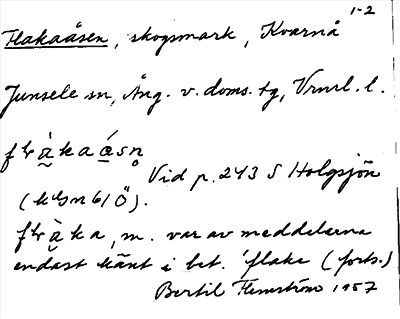 1-2
Flakaåsen, skogsmark, Kvarnå
Junsele sn, Ång. v. doms. tg, Vrnrl. l.
Vid p. 243 S Holgsjön
(kbn 61 Ö).
m. var av meddelarna
endast känt i bet. 'flake (forts.)
Bertil Flemström 1957